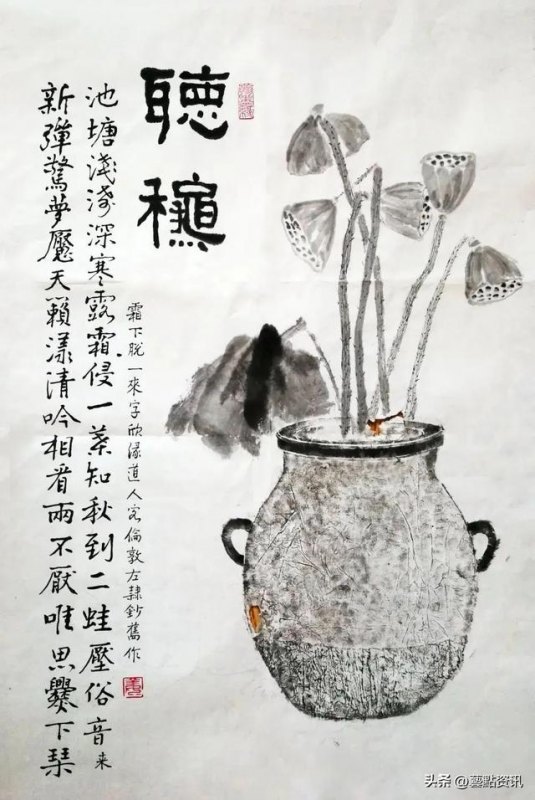 聽龝
池塘淺淺深寒露霜侵一葉知秋到二蛙壓俗音来
新彈驚夢魘天籟漾清吟相看兩不厭唯思爨下琹
霜下脫一來字欣緣道人客倫敦左隸鈔舊作
头条 @藝點资讯